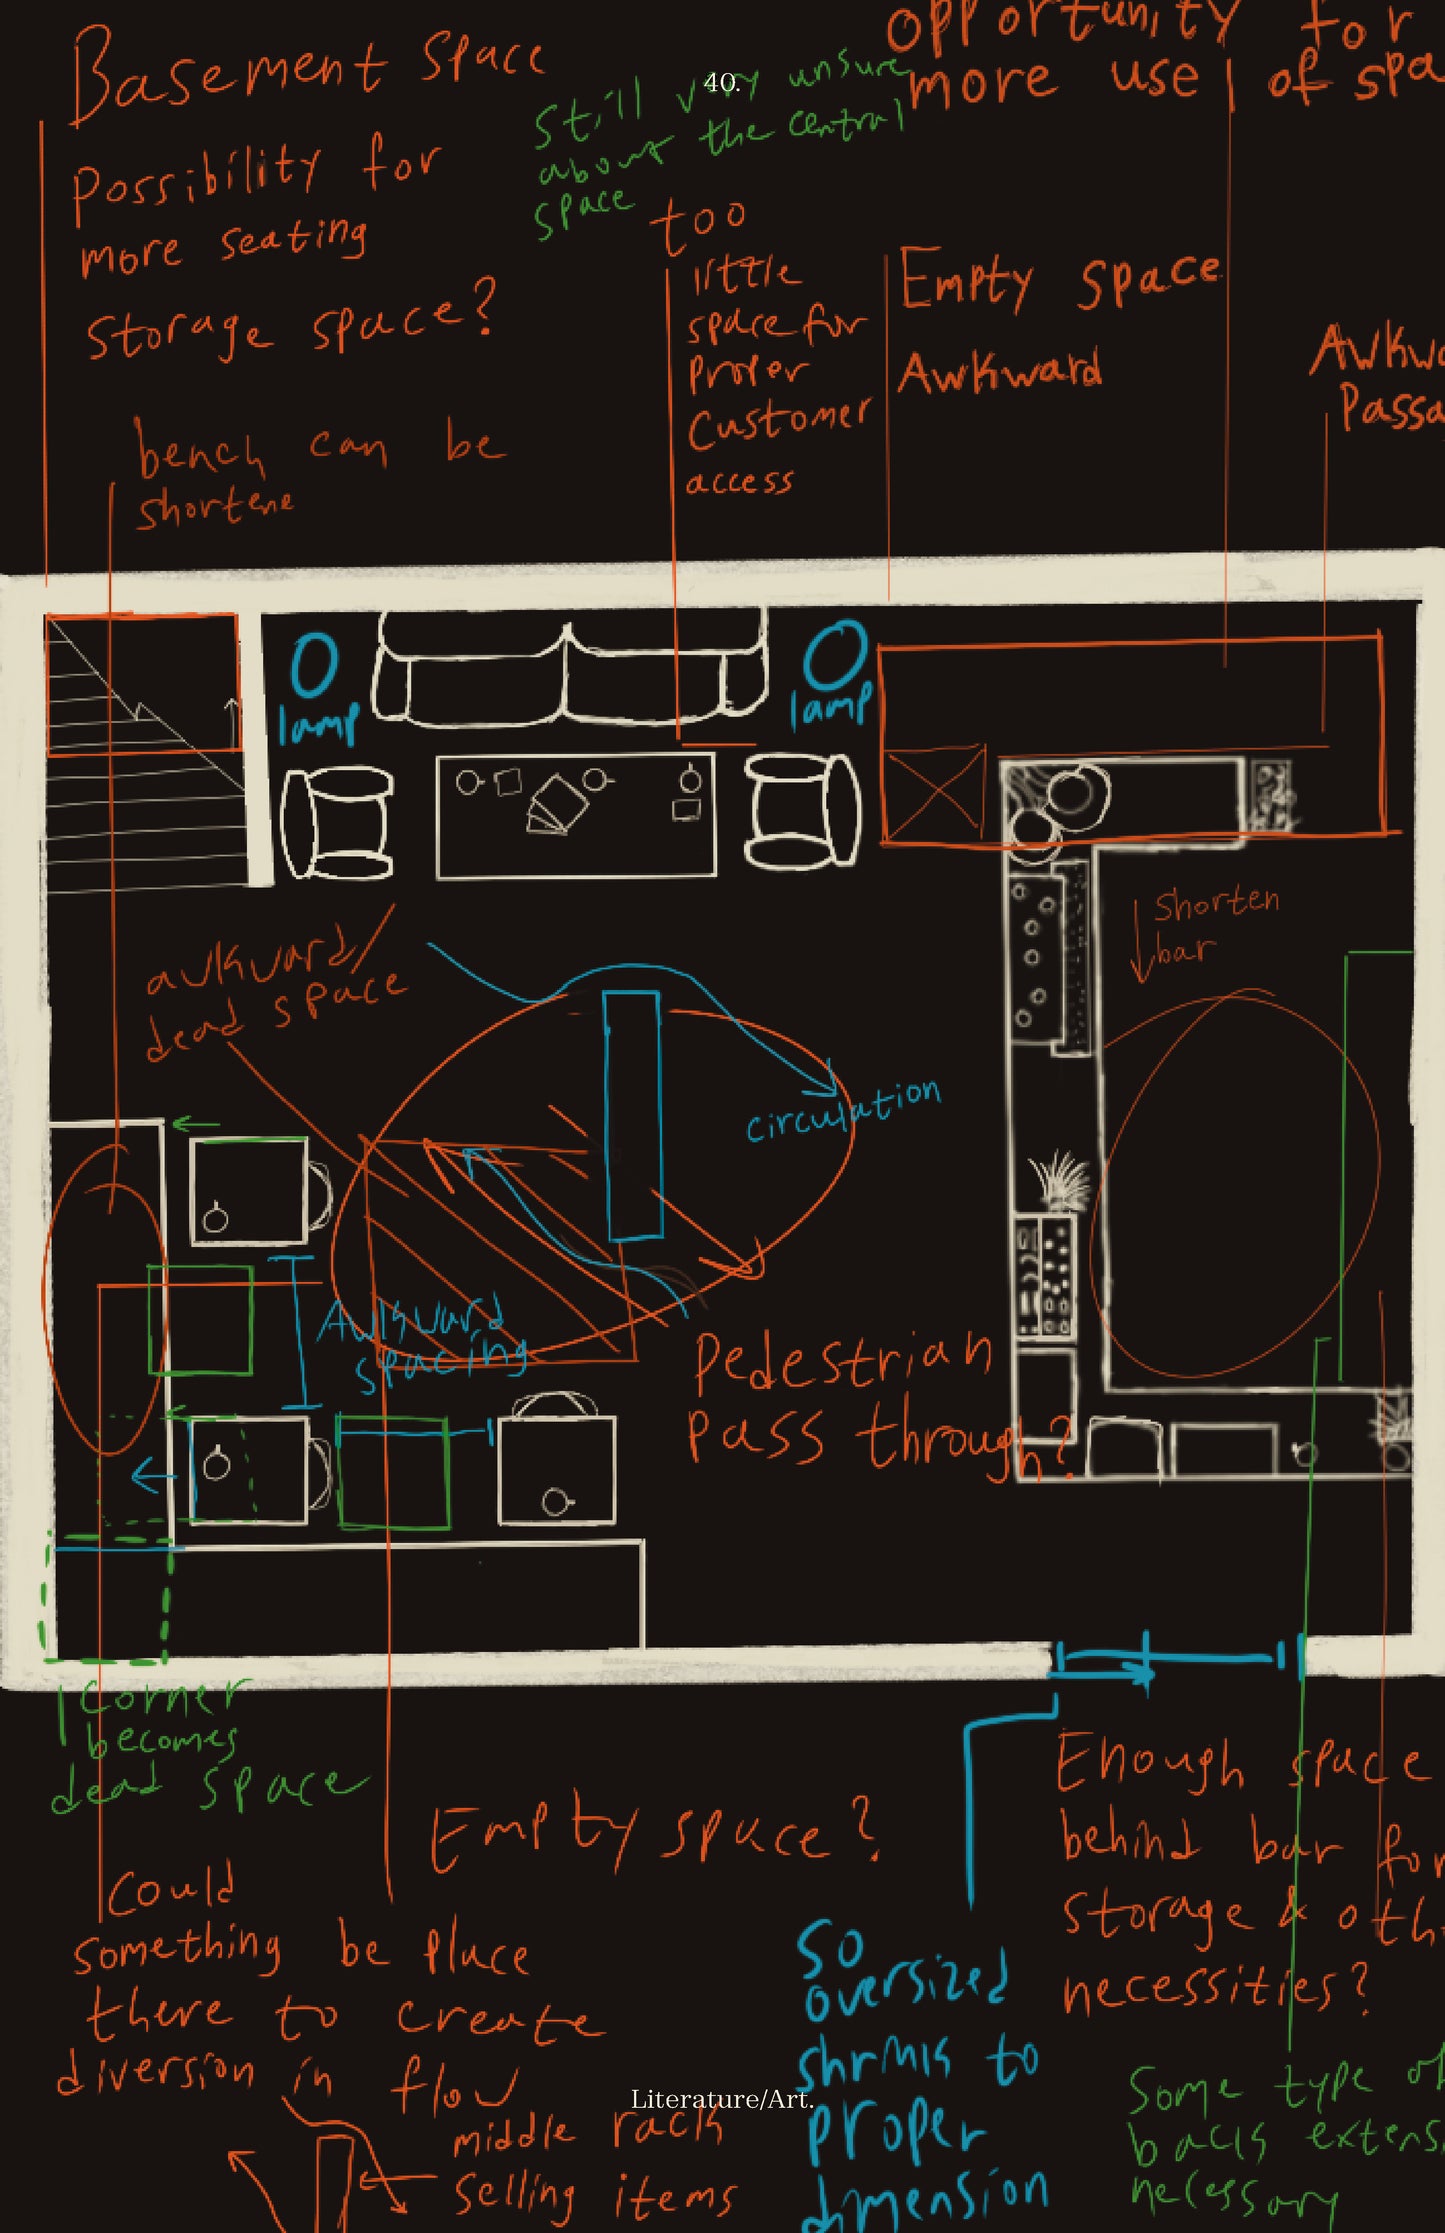 opportunity for
more use of spa
Basement space
40.
Still very unsure
about the central
space
Possibility for
more seating
Storage space?
too
little
space for
proper
Customer
access
Empty space
Awkward
Awkwa
Passa
bench can be
shortene
lamp
lamp
Shorten
bar
awkward/
dead space
circulation
Awkward
spacing
Pedestrian
pass through?
Corner
becomes
dead space
Empty space?
Enough space
behind bar for
storage & oth
necessities?
Could
something be place
there to create
diversion in flow
So
oversized
shrink to
proper
dimension
Literature/Art.
middle rack
selling items
Some type of
back extens
necessary